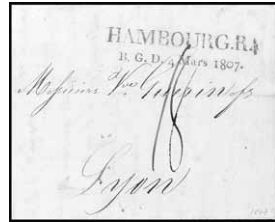 HAMBOURG.R.4
B. G. D. 4 Mars 1807.
Messieurs Vve Guerin & fils
18
Lyon